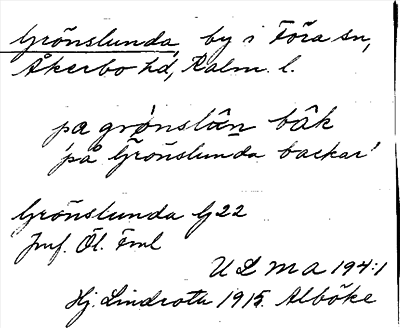 Grönslunda, by i Föra sn,
Åkerbo hd, Kalm. l.
pa grønslân bâk
'på Grönslunda backar'
Grönslunda G22
Jmf. Öl. Fml
ULMA 194:1
Hj. Lindroth 1915. Alböke